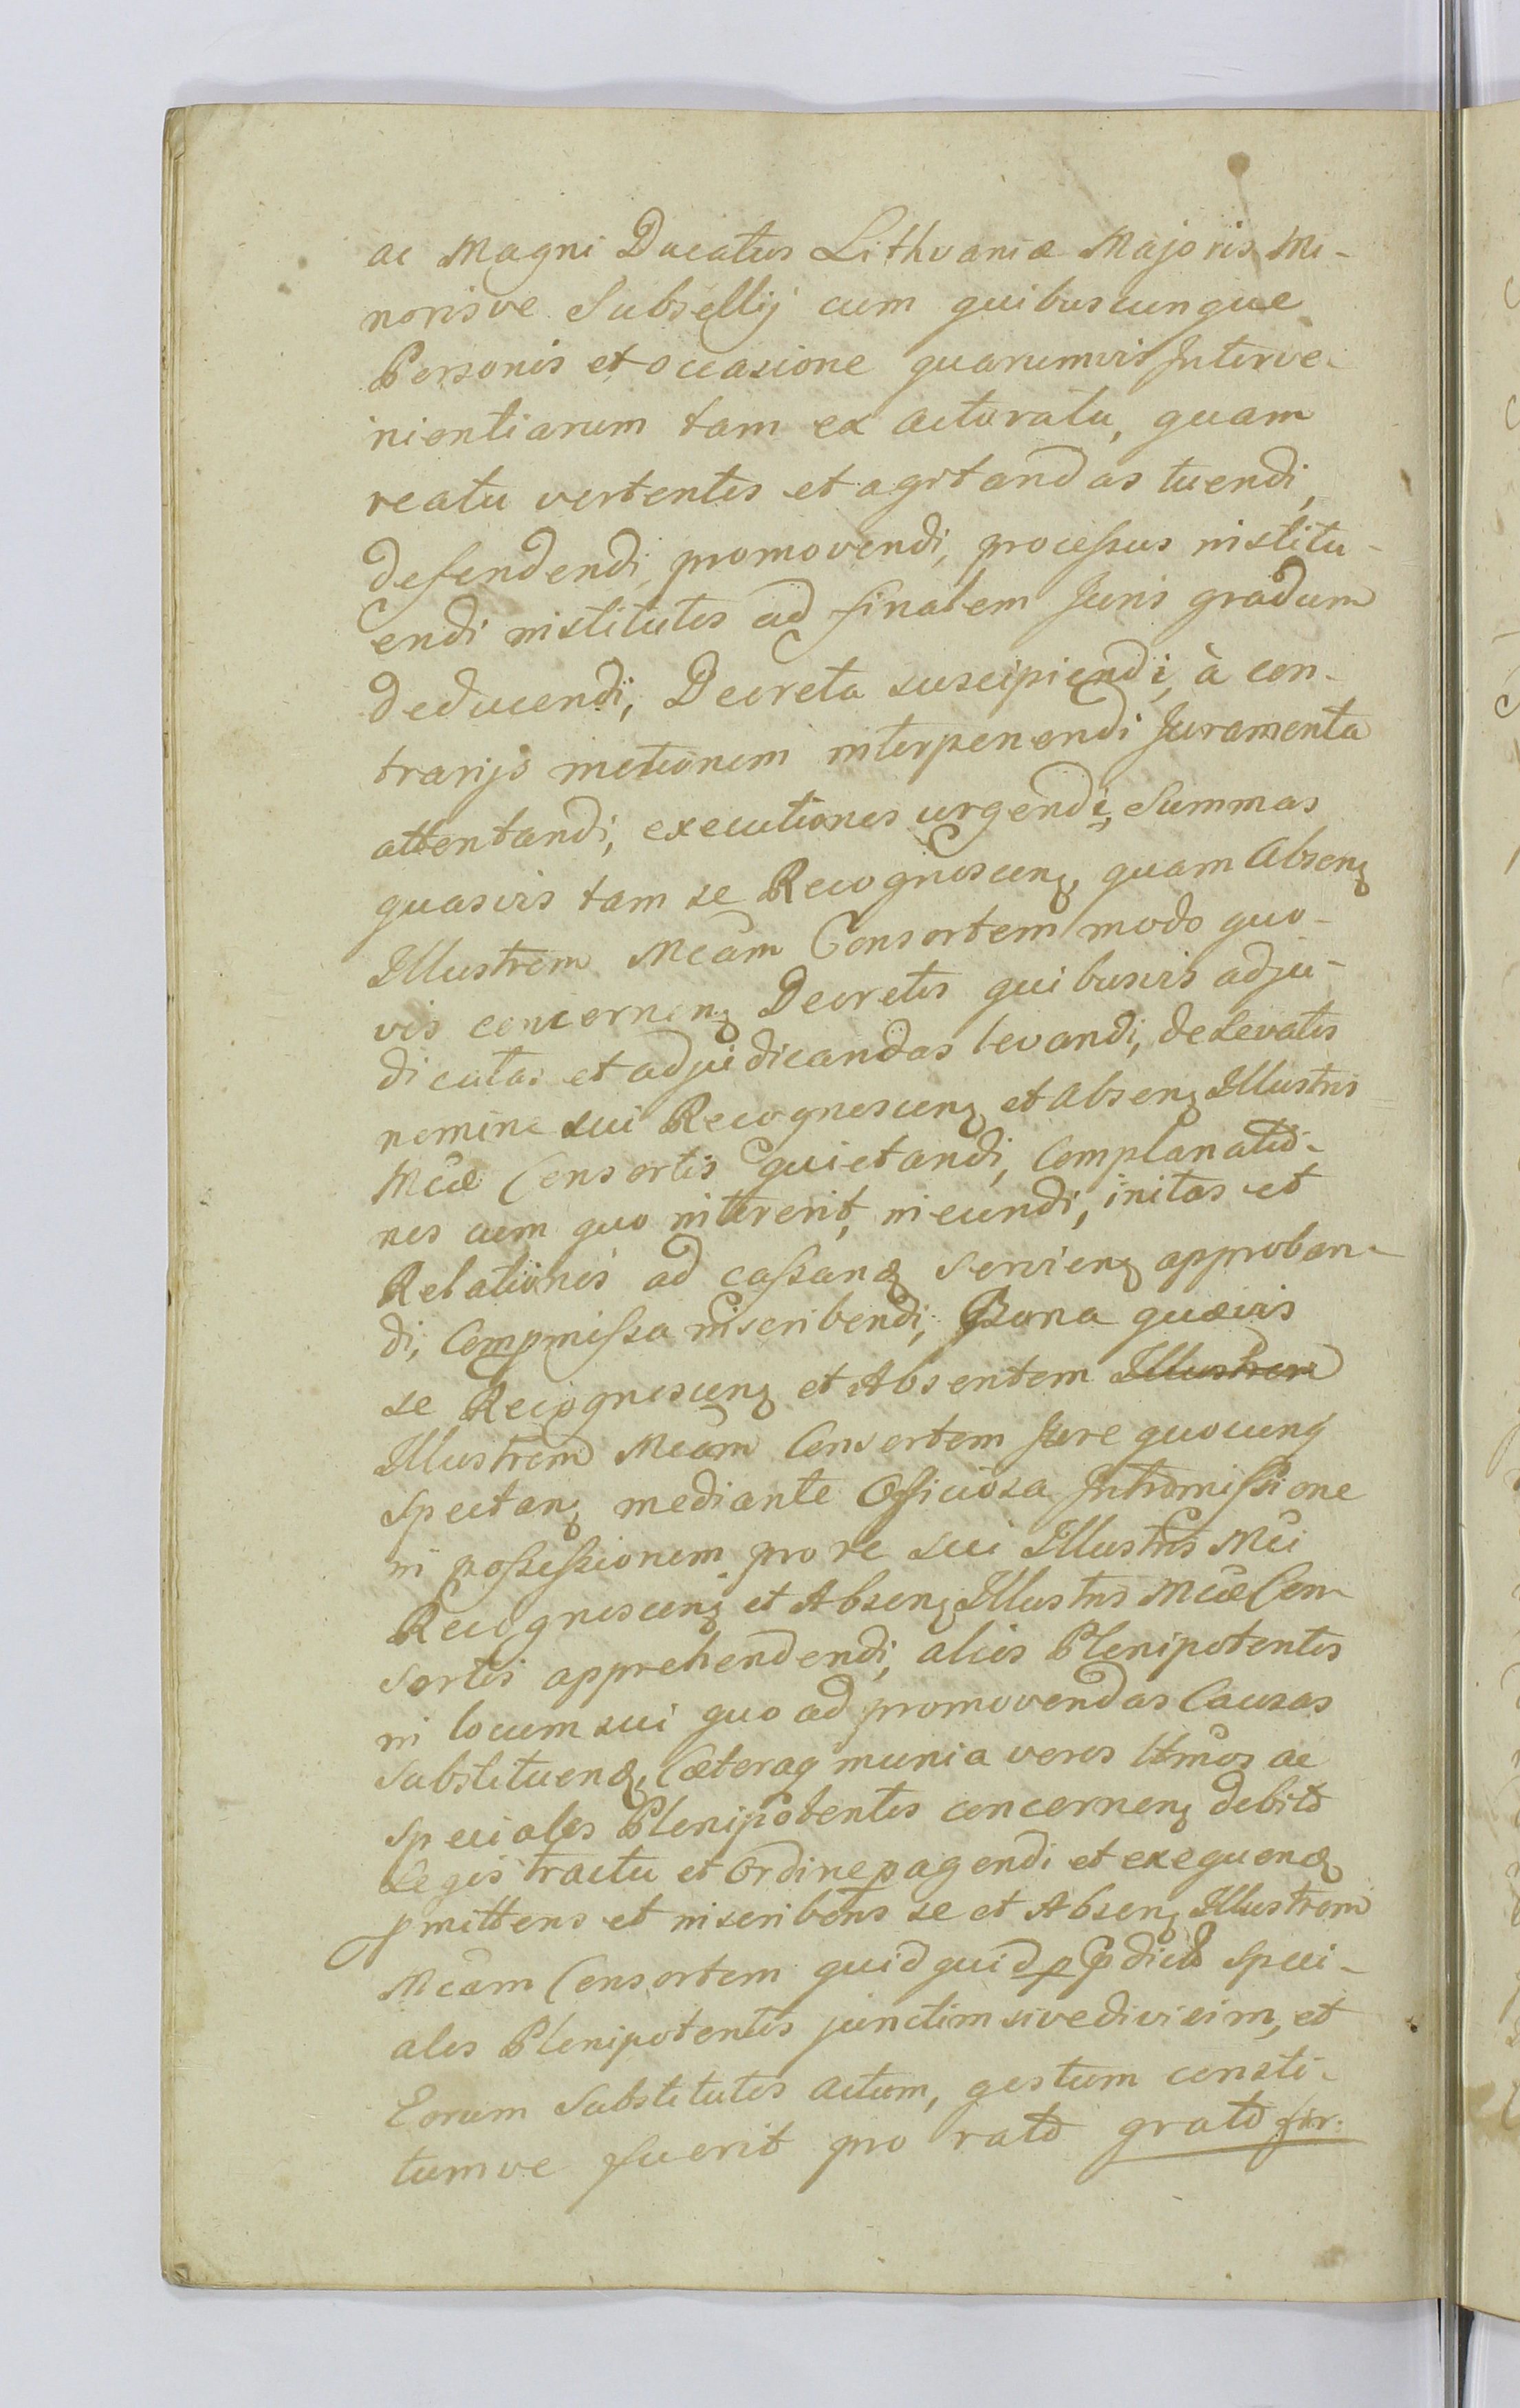 ac Magni Ducatus Lithvaniæ Majoris Mi-
norisve Subsellij cum quibuscunque
Personis et occasione quarumvis Interve-
nientiarum tam ex actoratu, quam
reatu vertentes et agitandas tuendi,
defendendi, promovendi, processus institu-
endi institutos ad finalem Juris gradum
deducendi, Decreta suscipiendi, à con-
trarijs motionem interponendi Juramenta
attentandi, executiones urgendi, Summas
quasvis tam se Recognoscenꝫ, quam Absenꝫ
Illustrem Mcam Consortem modo quo-
vis concernenꝫ Decretis quibusvis adju-
dicatas et adjudicandas levandi, de levatis
nomine sui Recognoscenꝫ et Absenꝫ Illustris
Mcæ Consortis quietandi, Complanatio-
nes cum quo intererit, ineundi, initas et
Relationis ad cassanꝺ servienꝫ approban-
di, Compmissa inscribendi, Bona quævis
se Recognoscenꝫ et Absentem Illustrem
Illustrem Mcam Consortem Jure quocunq
spectanꝫ mediante Officiosa Intromissione
in possessionem pro re sui Illustris Mci
Recognoscenꝫ et Absenꝫ Illustris Mcæ Con-
sortis apprehendendi, alios Plenipotentes
in locum sui quo ad promovendas Causas
substituenꝺ, Cæteraq munia veros Ltmos ac
speciales Plenipotentes concernenꝫ debito
Legis tractu et Ordine pagendi et exequenꝺ
pmittens et inscribens se et Absenꝫ Illustrem
Mcam Consortem quidquid p pdictos speci-
ales Plenipotentes junctim sive divisim, et
Eorum Substitutos actum, gestum consti-
tumve fuerit pro rato grato fir-